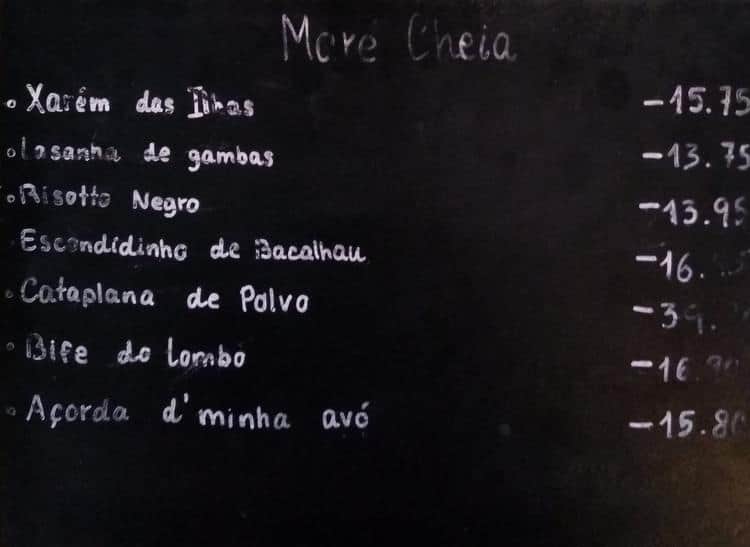 Maré Cheia
• Xarém das Ilhas -15.75
• Lasanha de gambas -13.75
• Risotto Negro -13.95
Escondidinho de Bacalhau -16.
• Cataplana de Polvo -39.
• Bife do Lombo -16.90
• Açorda d'minha avó -15.80